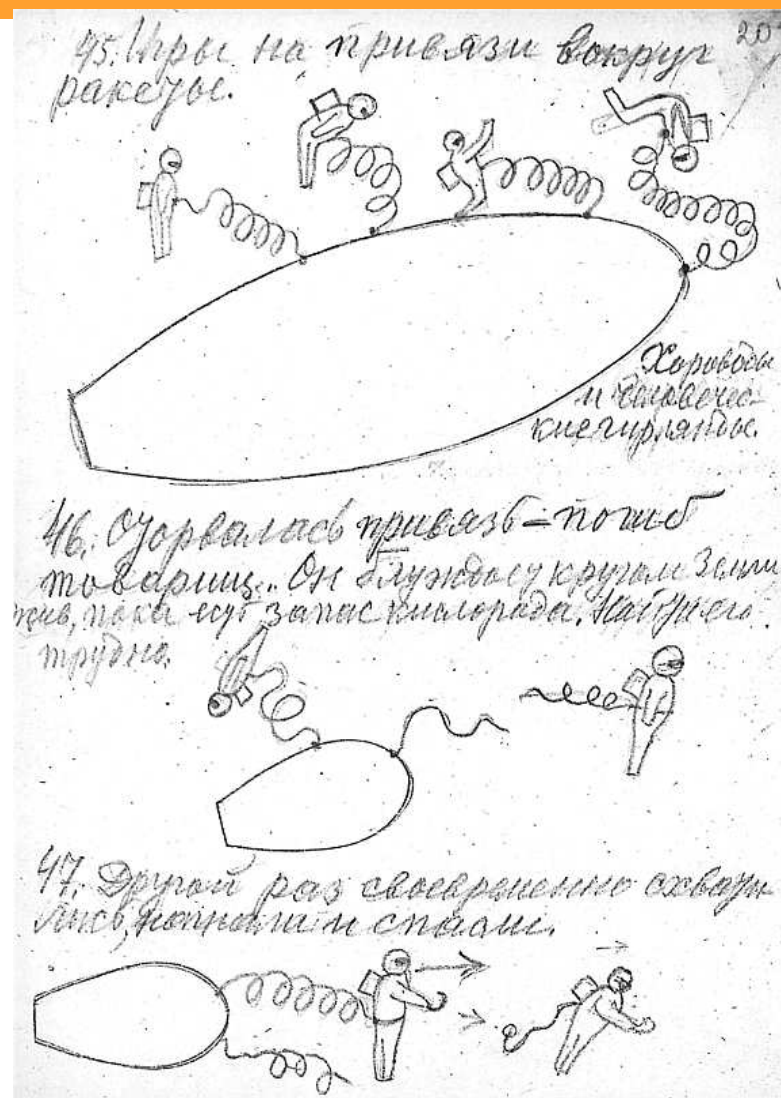 20
45. Игры на привязи вокруг
ракеты.
Хороводы
и человечес-
кие гирлянды.
46. Оторвалась привязь – погиб
товарищ.. Он блуждает кругом Земли
жив, пока есть запас кислорода. Найти его
трудно.
47. Другой раз своевременно схвати-
лись, нагнали и спасли.